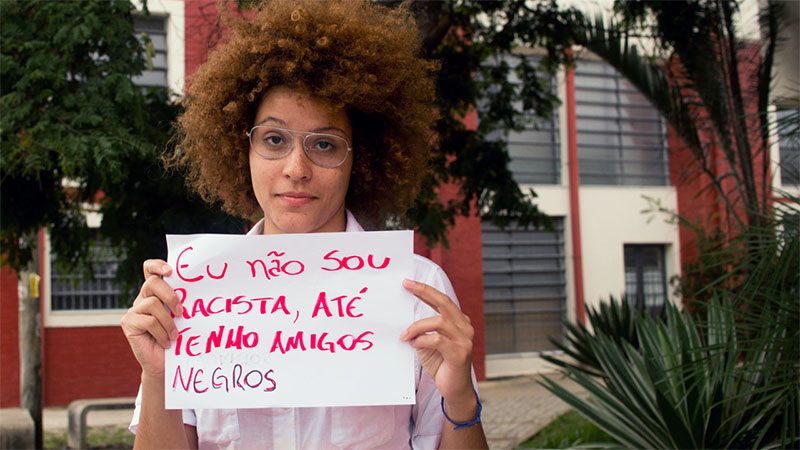 Eu não sou
Racista, até
tenho amigos
negros